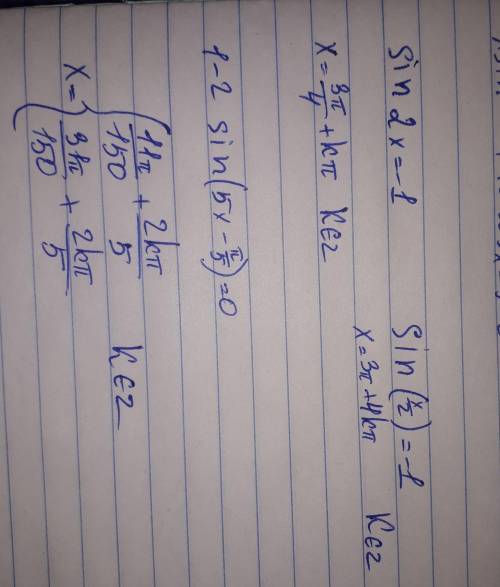 sin 2x = -1
x = 3π/4 + kπ k∈z
sin(x/2) = -1
x = 3π + 4kπ k∈z
1 - 2 sin(5x - π/5) = 0
x = { 11π/150 + 2kπ/5
31π/150 + 2kπ/5 k∈z